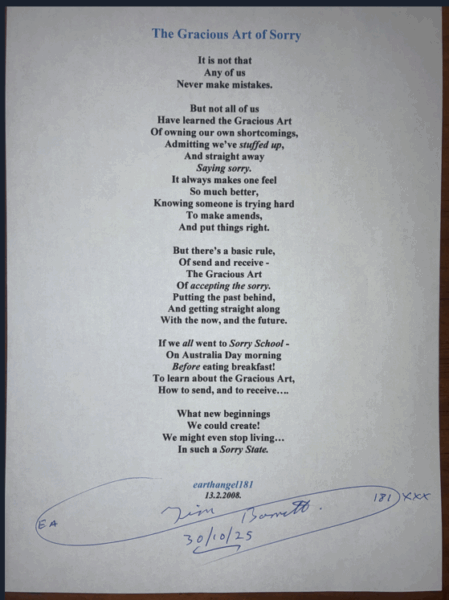 The Gracious Art of Sorry
It is not that
Any of us
Never make mistakes.
But not all of us
Have learned the Gracious Art
Of owning our own shortcomings,
Admitting we've stuffed up,
And straight away
Saying sorry.
It always makes one feel
So much better,
Knowing someone is trying hard
To make amends,
And put things right.
But there's a basic rule,
Of send and receive -
The Gracious Art
Of accepting the sorry.
Putting the past behind,
And getting straight along
With the now, and the future.
If we all went to Sorry School -
On Australia Day morning
Before eating breakfast!
To learn about the Gracious Art,
How to send, and to receive….
What new beginnings
We could create!
We might even stop living…
In such a Sorry State.
earthangel181
13.2.2008.
EA 181 XXX
30/10/25